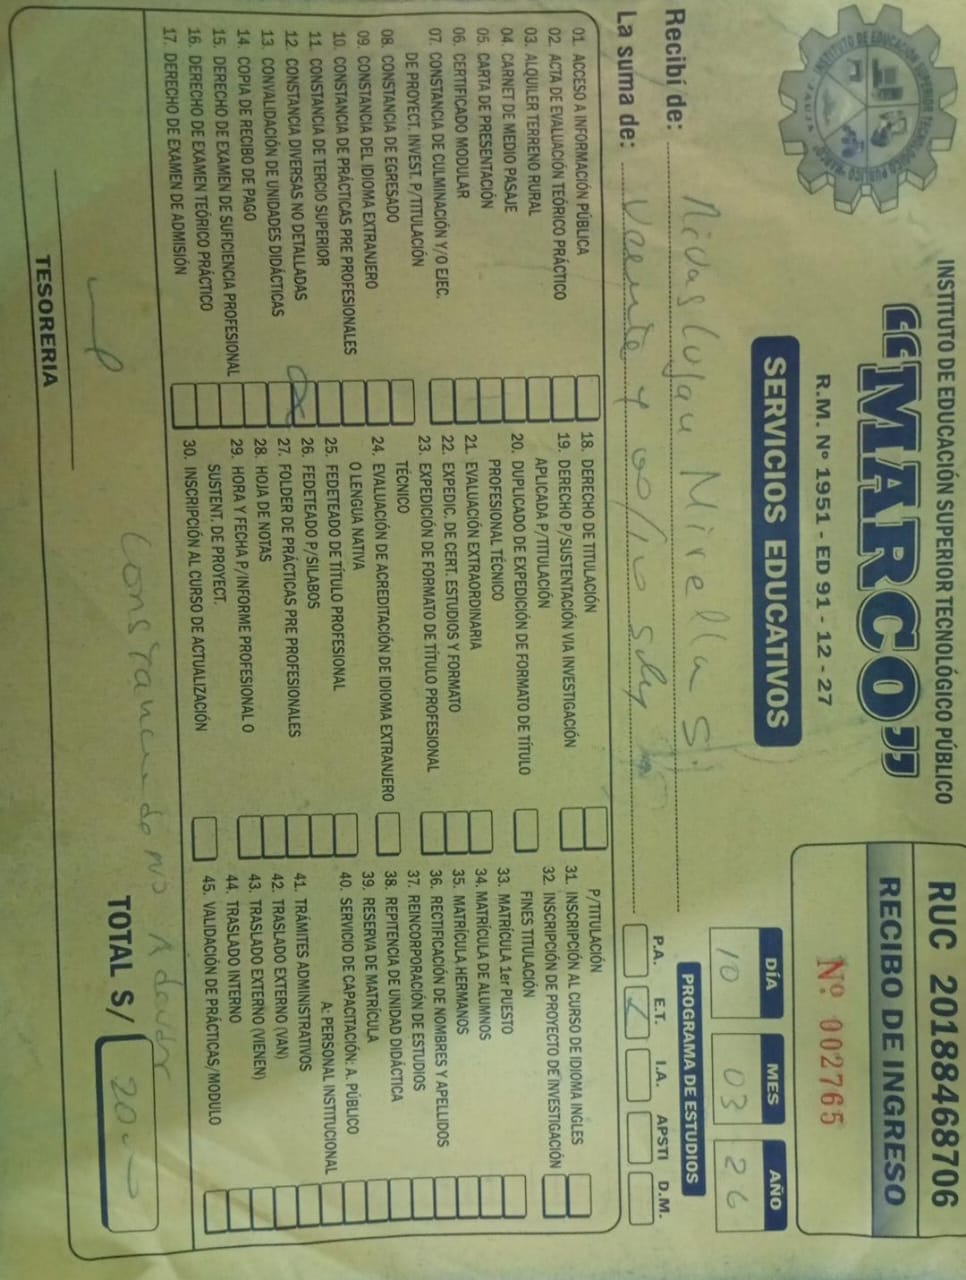 INSTITUTO DE EDUCACIÓN SUPERIOR TECNOLÓGICO PÚBLICO
"MARCO"
R.M. Nº 1951 - ED 91 - 12 - 27
SERVICIOS EDUCATIVOS
RUC 20188468706
RECIBO DE INGRESO
Nº 002765
DÍA MES AÑO
10 03 26
PROGRAMA DE ESTUDIOS
P.A. E.T. I.A. APSTI D.M.
Recibí de: Mirella S.
La suma de: Veinte y 00/
01. ACCESO A INFORMACIÓN PÚBLICA
02. ACTA DE EVALUACIÓN TEÓRICO PRÁCTICO
03. ALQUILER TERRENO RURAL
04. CARNET DE MEDIO PASAJE
05. CARTA DE PRESENTACIÓN
06. CERTIFICADO MODULAR
07. CONSTANCIA DE CULMINACIÓN Y/O EJEC.
DE PROYECT. INVEST. P/TITULACIÓN
08. CONSTANCIA DE EGRESADO
09. CONSTANCIA DEL IDIOMA EXTRANJERO
10. CONSTANCIA DE PRÁCTICAS PRE PROFESIONALES
11. CONSTANCIA DE TERCIO SUPERIOR
12. CONSTANCIA DIVERSAS NO DETALLADAS
13. CONVALIDACIÓN DE UNIDADES DIDÁCTICAS
14. COPIA DE RECIBO DE PAGO
15. DERECHO DE EXAMEN DE SUFICIENCIA PROFESIONAL
16. DERECHO DE EXAMEN TEÓRICO PRÁCTICO
17. DERECHO DE EXAMEN DE ADMISIÓN
18. DERECHO DE TITULACIÓN
19. DERECHO P/SUSTENTACIÓN VIA INVESTIGACIÓN
APLICADA P/TITULACIÓN
20. DUPLICADO DE EXPEDICIÓN DE FORMATO DE TÍTULO
PROFESIONAL TÉCNICO
21. EVALUACIÓN EXTRAORDINARIA
22. EXPEDIC. DE CERT. ESTUDIOS Y FORMATO
23. EXPEDICIÓN DE FORMATO DE TÍTULO PROFESIONAL
TÉCNICO
24. EVALUACIÓN DE ACREDITACIÓN DE IDIOMA EXTRANJERO
O LENGUA NATIVA
25. FEDETEADO DE TÍTULO PROFESIONAL
26. FEDETEADO P/SILABOS
27. FOLDER DE PRÁCTICAS PRE PROFESIONALES
28. HOJA DE NOTAS
29. HORA Y FECHA P/INFORME PROFESIONAL O
SUSTENT. DE PROYECT.
30. INSCRIPCIÓN AL CURSO DE ACTUALIZACIÓN
P/TITULACIÓN
31. INSCRIPCIÓN AL CURSO DE IDIOMA INGLES
32. INSCRIPCIÓN DE PROYECTO DE INVESTIGACIÓN
FINES TITULACIÓN
33. MATRÍCULA 1er PUESTO
34. MATRÍCULA DE ALUMNOS
35. MATRÍCULA HERMANOS
36. RECTIFICACIÓN DE NOMBRES Y APELLIDOS
37. REINCORPORACIÓN DE ESTUDIOS
38. REPITENCIA DE UNIDAD DIDÁCTICA
39. RESERVA DE MATRÍCULA
40. SERVICIO DE CAPACITACIÓN: A. PÚBLICO
A: PERSONAL INSTITUCIONAL
41. TRÁMITES ADMINISTRATIVOS
42. TRASLADO EXTERNO (VAN)
43. TRASLADO EXTERNO (VIENEN)
44. TRASLADO INTERNO
45. VALIDACIÓN DE PRÁCTICAS/MODULO
Constancia de no Adeudar
TESORERIA
TOTAL S/ 20